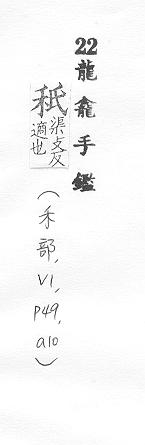 22 龍龕手鑑
秖 渠支反
適也
(禾部, V1, P49, a10)